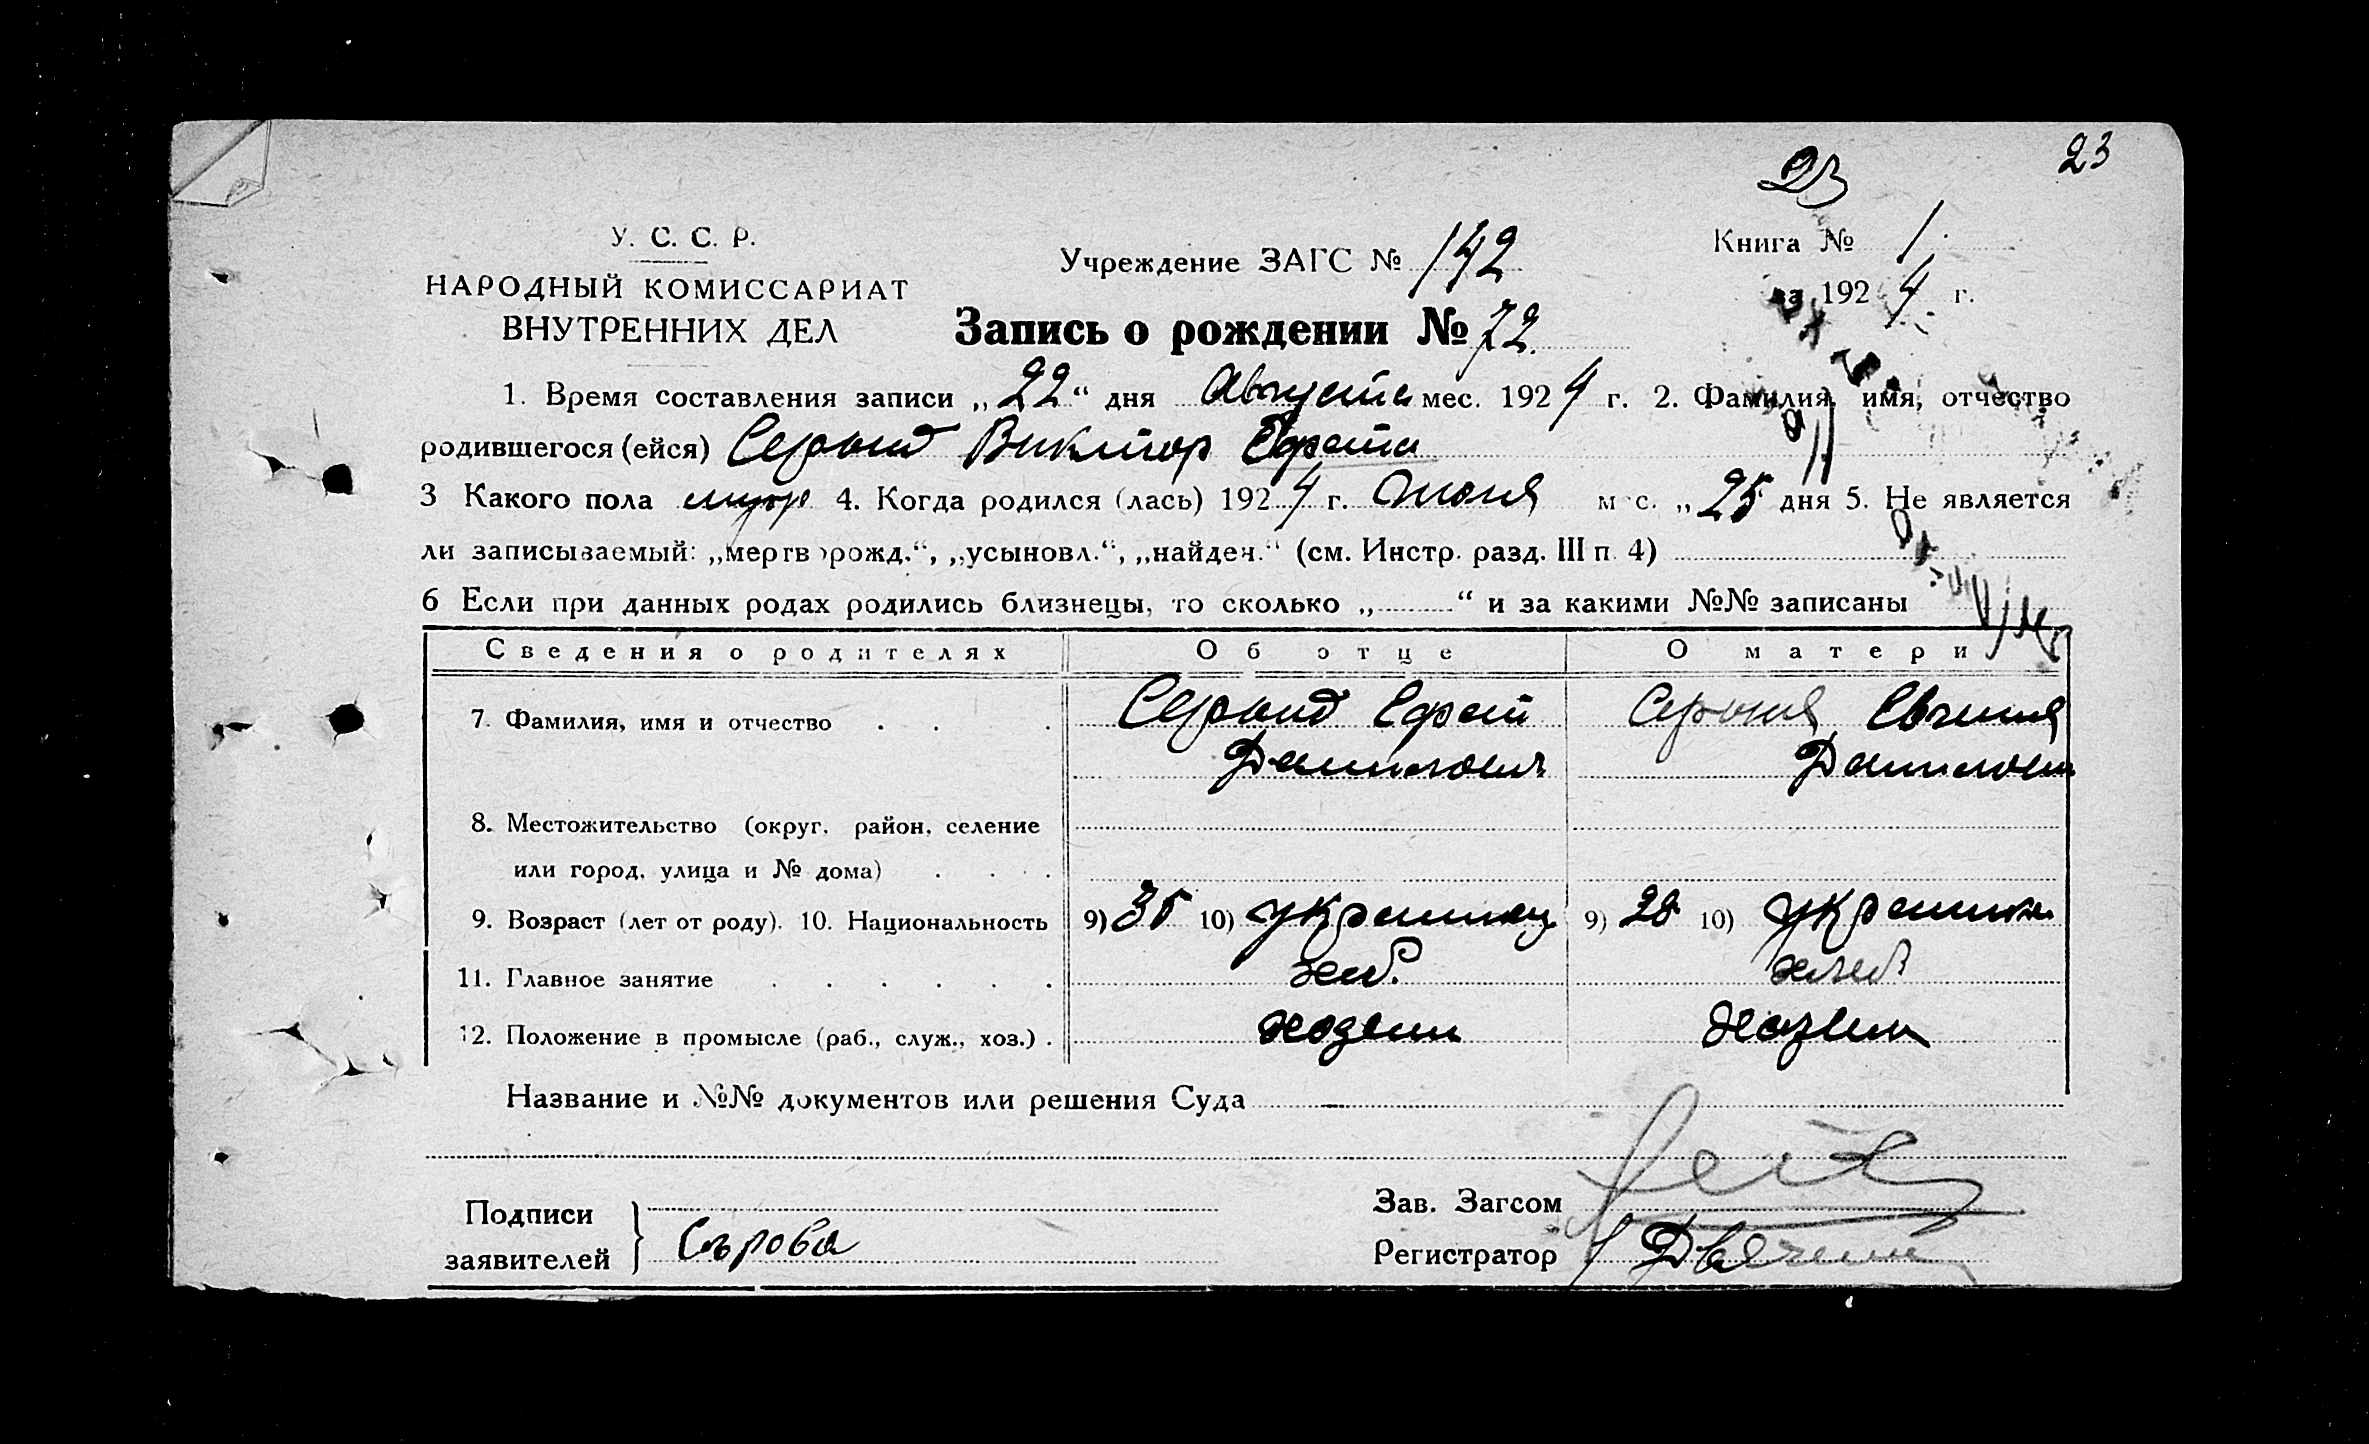 23
23
У. С. С. Р.
НАРОДНЫЙ КОМИССАРИАТ
ВНУТРЕННИХ ДЕЛ
Учреждение ЗАГС № 142
Книга № 1
за 1924 г.
Запись о рождении № 72.
1. Время составления записи „22“ дня Августа мес. 1924 г. 2. Фамилия, имя, отчество
родившегося (ейся) Серый Виктор
3 Какого пола муж 4. Когда родился (лась) 1924 г. Июня мес. „25 дня 5. Не является
ли записываемый: „мертворожд.“, „усыновл.“, „найден.“ (см. Инстр. разд. III п. 4)
6 Если при данных родах родились близнецы, то сколько „ “ и за какими №№ записаны
Сведения о родителях Об отце О матери
7. Фамилия, имя и отчество Серый Серыя
Данилович
8. Местожительство (округ, район, селение
или город, улица и № дома)
9. Возраст (лет от роду). 10. Национальность 9) 35 10) украинец 9) 28 10)
11. Главное занятие хлеб. хлеб
12. Положение в промысле (раб., служ., хоз.) хозяин
Название и №№ документов или решения Суда
Подписи
заявителей Сърова
Зав. Загсом
Регистратор